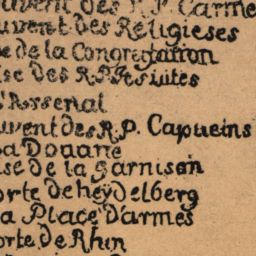 uvent des R.P. Carme
uvent des Religieses
se de la Congregation
ise des R.P. Jesuites
l'Arsenal
uvent des R.P. Capucins
La Douane
ise de la Garnison
orte de heydelberg
La Place D'armes
orte de Rhin